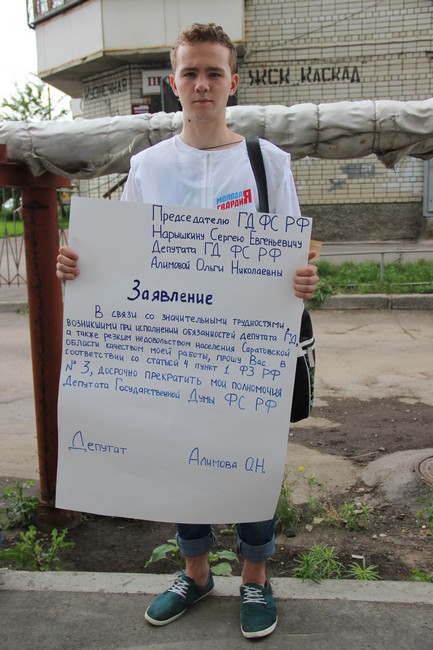 ЖСК КАСКАД
МОЛОДАЯ
ГВАРДИЯ
Председателю ГД ФС РФ
Нарышкину Сергею Евгеньевичу
Депутата ГД ФС РФ
Алимовой Ольги Николаевны
Заявление
В связи со значительными трудностями,
возникшими при исполнении обязанностей депутата ГД,
а также резким недовольством населения Саратовской
области качеством моей работы, прошу Вас в
соответствии со статьей 4 пункт 1 ФЗ РФ
№ 3, досрочно прекратить мои полномочия
Депутата Государственной Думы ФС РФ
Депутат Алимова О.Н.